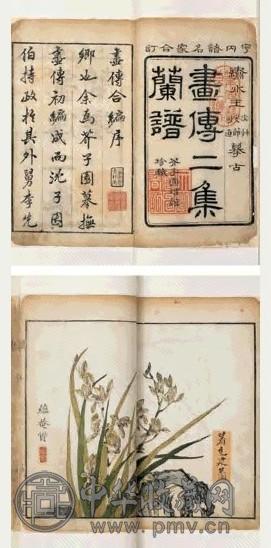 宇內諸名家合訂
繡水王
摹古
畫傳二集
蘭譜
芥子園甥館
珍藏
畫傳合編序
鄉也余為芥子園摹撫
畫傳初編成而沈子因
伯持政於其外舅李先
中华收藏网
www.pmv.cn